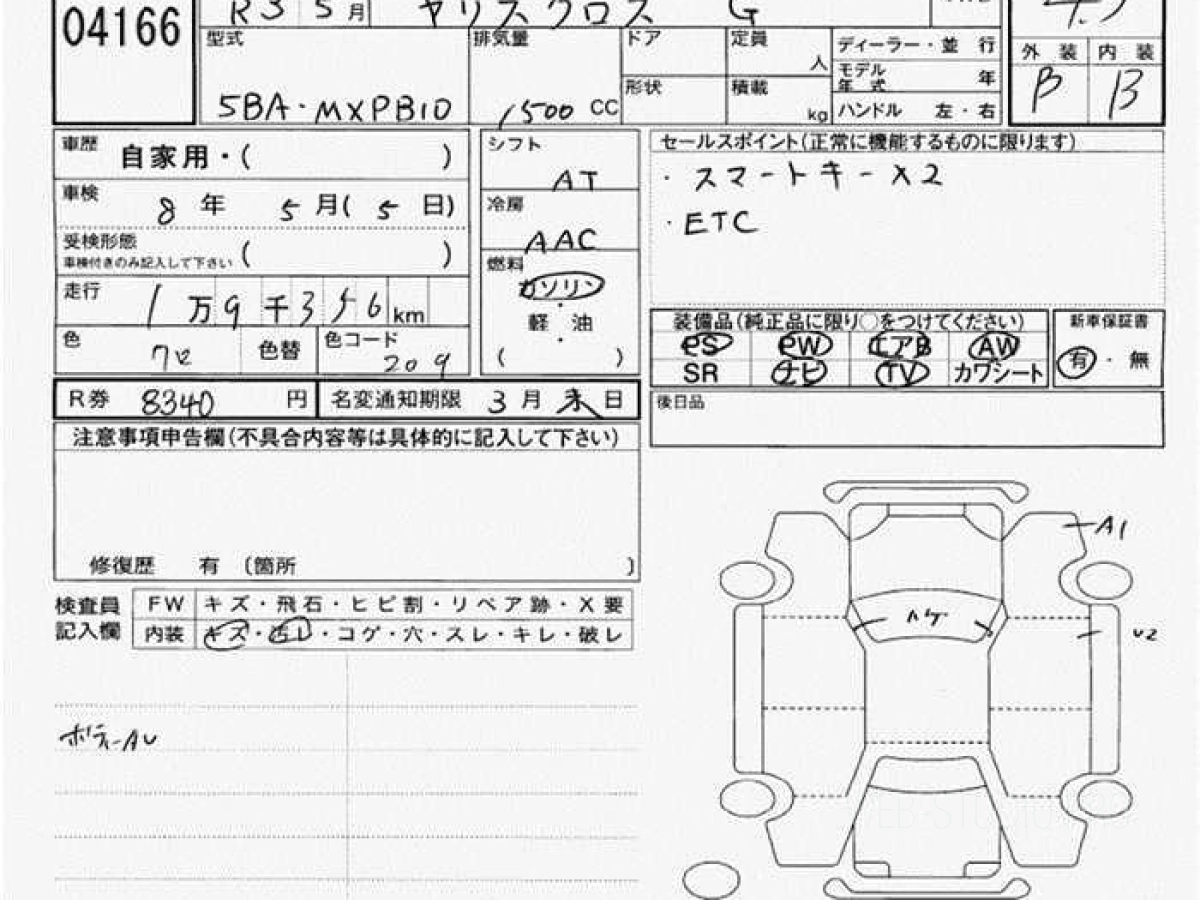 04166
R3 5月 ヤリスクロス G
型式 5BA・MXPB10
排気量 1500 CC
ドア
形状
定員 人
積載 kg
ディーラー・並 行
モデル年式 年
ハンドル 左・右
外 装 内 装
B B
車歴 自家用・( )
車検 8 年 5 月( 5 日)
受検形態
車検付きのみ記入して下さい ( )
走行 1 万 9 千 3 5 6 km
色 クロ 色替 色コード 209
シフト AT
冷房 AAC
燃料 ガソリン
軽 油
( )
セールスポイント(正常に機能するものに限ります)
・スマートキー X2
・ETC
装備品(純正品に限り○をつけてください)
PS PW エアB AW
SR ナビ TV カワシート
新車保証書
有・無
R券 8340 円 名変通知期限 3 月 末 日
後日品
注意事項申告欄(不具合内容等は具体的に記入して下さい)
修復歴 有 (箇所 )
検査員記入欄
FW キズ・飛石・ヒビ割・リペア跡・X要
内装 キズ・汚レ・コゲ・穴・スレ・キレ・破レ
ボディーAU
A1
ハゲ
U2